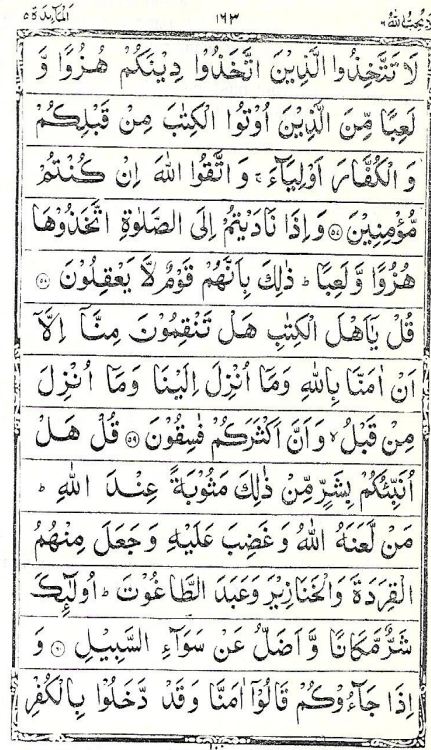 لَا يُحِبُّ اللهُ ٦ ١٦٣ اَلْمَآئِدَة ٥
لَا تَتَّخِذُوا الَّذِيْنَ اتَّخَذُوْا دِيْنَكُمْ هُزُوًا وَّ
لَعِبًا مِّنَ الَّذِيْنَ اُوْتُوا الْكِتٰبَ مِنْ قَبْلِكُمْ
وَ الْكُفَّارَ اَوْلِيَآءَ ۚ وَ اتَّقُوا اللهَ اِنْ كُنْتُمْ
مُّؤْمِنِيْنَ ۝٥٧ وَ اِذَا نَادَيْتُمْ اِلَى الصَّلٰوةِ اتَّخَذُوْهَا
هُزُوًا وَّ لَعِبًا ؕ ذٰلِكَ بِاَنَّهُمْ قَوْمٌ لَّا يَعْقِلُوْنَ ۝٥٨
قُلْ يٰۤاَهْلَ الْكِتٰبِ هَلْ تَنْقِمُوْنَ مِنَّاۤ اِلَّاۤ
اَنْ اٰمَنَّا بِاللهِ وَمَاۤ اُنْزِلَ اِلَيْنَا وَمَاۤ اُنْزِلَ
مِنْ قَبْلُ ۙ وَ اَنَّ اَكْثَرَكُمْ فٰسِقُوْنَ ۝٥٩ قُلْ هَلْ
اُنَبِّئُكُمْ بِشَرٍّ مِّنْ ذٰلِكَ مَثُوْبَةً عِنْدَ اللهِ ؕ
مَنْ لَّعَنَهُ اللهُ وَ غَضِبَ عَلَيْهِ وَ جَعَلَ مِنْهُمُ
الْقِرَدَةَ وَ الْخَنَازِيْرَ وَ عَبَدَ الطَّاغُوْتَ ؕ اُولٰٓئِكَ
شَرٌّ مَّكَانًا وَّ اَضَلُّ عَنْ سَوَآءِ السَّبِيْلِ ۝٦٠ وَ
اِذَا جَآءُوْكُمْ قَالُوْۤا اٰمَنَّا وَ قَدْ دَّخَلُوْا بِالْكُفْرِ